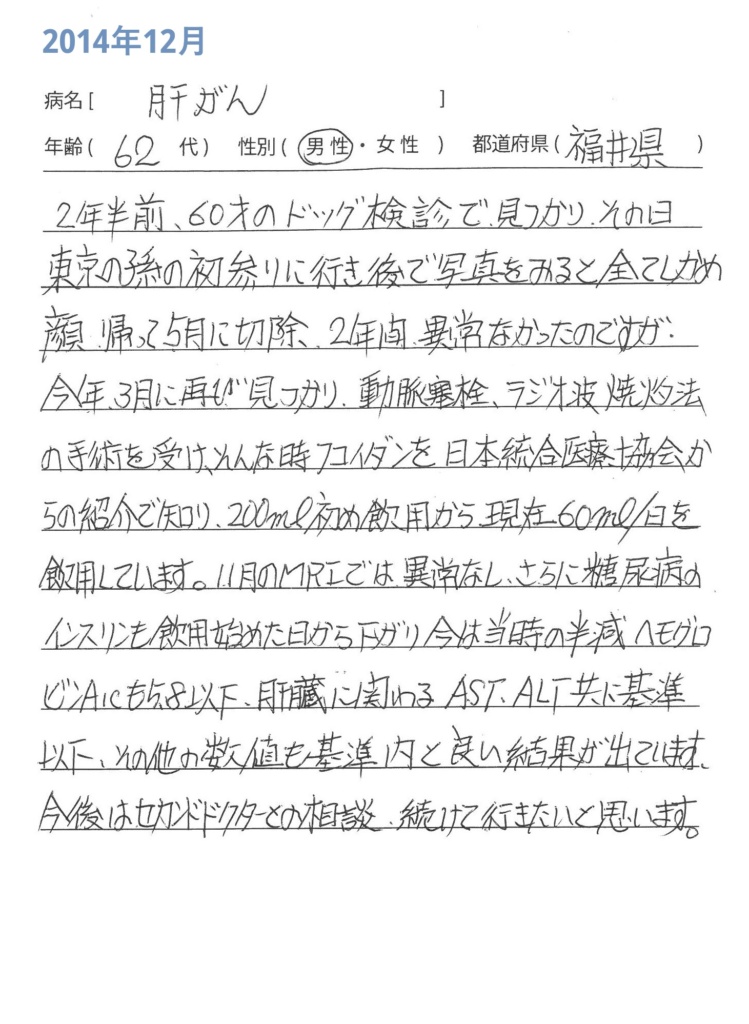 2014年12月
病名[ 肝がん ]
年齢( 62 代) 性別( 男性・女性 ) 都道府県( 福井県 )
2年半前、60才のドッグ検診で見つかり、その日
東京の孫の初参りに行き後で写真をみると全てしかめ
顔、帰って5月に切除、2年間、異常なかったのですが、
今年、3月に再び見つかり、動脈塞栓、ラジオ波焼灼法
の手術を受け、そんな時フコイダンを日本統合医療協会か
らの紹介で知り、200ml初め飲用から現在60ml/日を
飲用しています。11月のMRIでは異常なし、さらに糖尿病の
インスリンも飲用始めた日から下がり今は当時の半減ヘモグロ
ビンA1cも5.8以下、肝臓に関わるAST、ALT共に基準
以下、その他の数値も基準内と良い結果が出ています、
今後はセカンドドクターとの相談、続けて行きたいと思います。